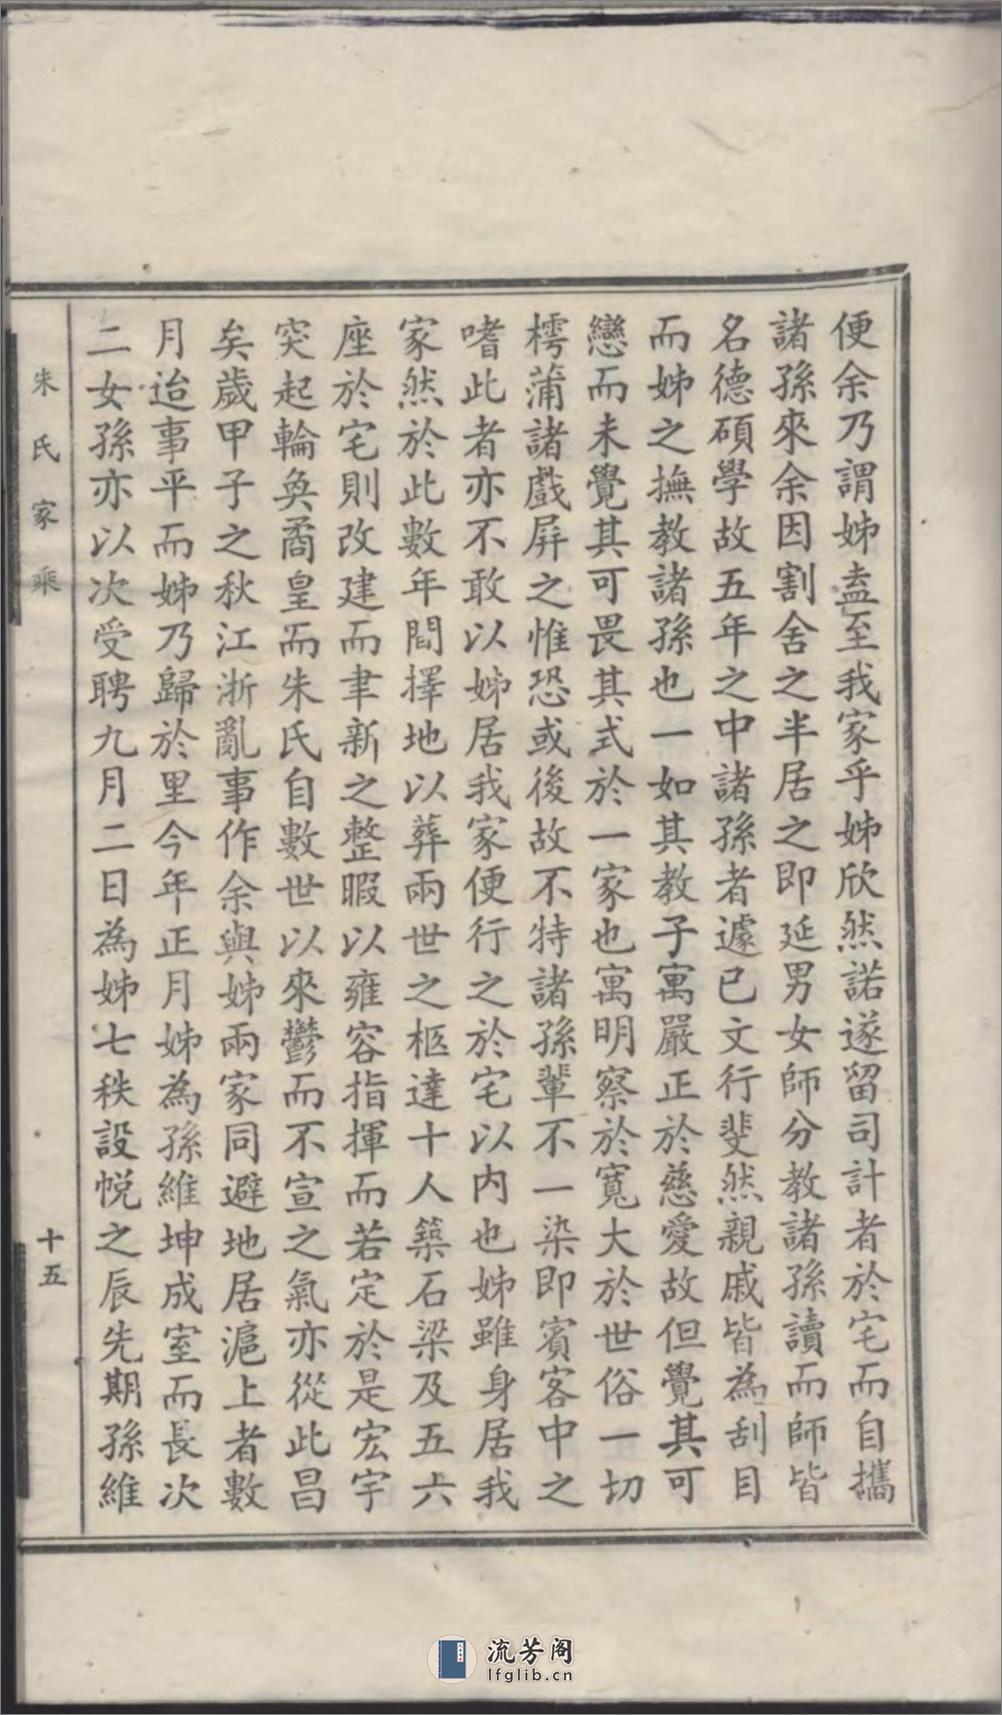 便余乃謂姊盍至我家乎姊欣然諾遂留司計者於宅而自攜
諸孫來余因割舍之半居之即延男女師分教諸孫讀而師皆
名德碩學故五年之中諸孫者遽已文行斐然親戚皆為刮目
而姊之撫教諸孫也一如其教子寓嚴正於慈愛故但覺其可
戀而未覺其可畏其式於一家也寓明察於寬大於世俗一切
樗蒲諸戲屏之惟恐或後故不特諸孫輩不一染即賓客中之
嗜此者亦不敢以姊居我家便行之於宅以内也姊雖身居我
家然於此數年間擇地以葬兩世之柩達十人築石梁及五六
座於宅則改建而聿新之整暇以雍容指揮而若定於是宏宇
突起輪奐矞皇而朱氏自數世以來鬱而不宣之氣亦從此昌
矣歲甲子之秋江浙亂事作余與姊兩家同避地居滬上者數
月迨事平而姊乃歸於里今年正月姊為孫維坤成室而長次
二女孫亦以次受聘九月二日為姊七秩設帨之辰先期孫維
朱氏家乘
十五
流芳阁
lfglib.cn